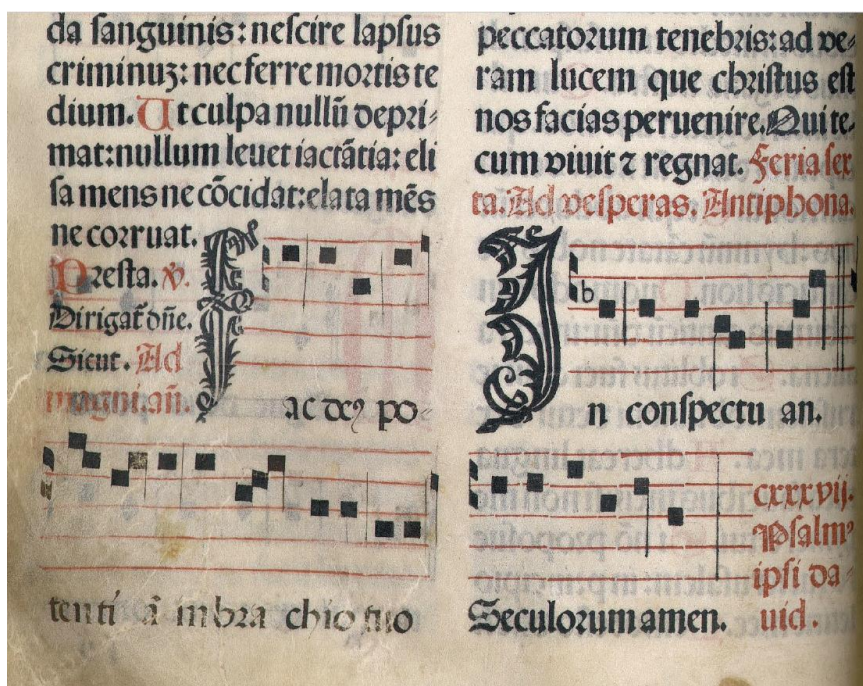 da sanguinis: nescire lapsus
criminuz: nec ferre mortis te
dium. Ut culpa nullū depri-
mat: nullum leuet iactātia: eli
sa mens ne cōcidat: elata mēs
ne corruat.
Presta. v.
Dirigat dñe.
Sicut. Ad
magni. añ.
Fac deꝰ po-
tenti ā in bra chio tuo
peccatorum tenebris: ad ve-
ram lucem que christus est
nos facias peruenire. Qui te-
cum viuit ⁊ regnat. Feria sex
ta. Ad vesperas. Antiphona.
In conspectu an.
Seculorum amen.
cxxxvij.
Psalmꝰ
ipsi da-
uid.